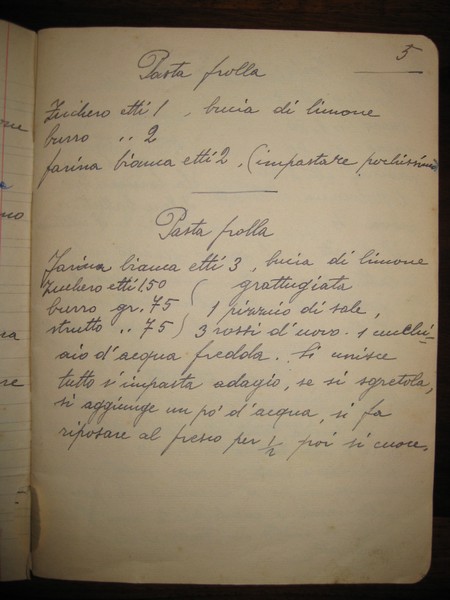 5
Pasta frolla
Zucchero etti 1, bucia di limone
burro " 2
farina bianca etti 2. (impastare pochissimo
Pasta frolla
Farina bianca etti 3, bucia di limone
Zucchero etti 1.50 ( grattugiata
burro gr. 75 ) 1 pizzico di sale,
strutto " 75 ) 3 rossi d'uovo. 1 cucchi-
aio d'acqua fredda. Si unisce
tutto s'impasta adagio, se si sgretola,
si aggiunge un po' d'acqua, si fa
riposare al fresco per 1/2 poi si cuoce.